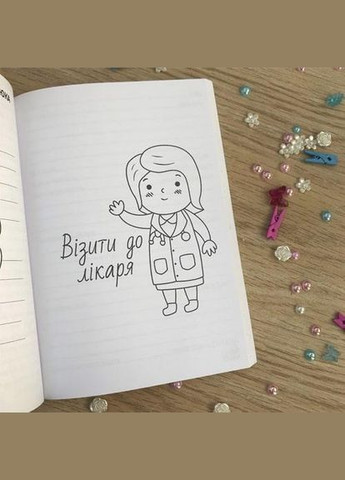 Візити до
лікаря